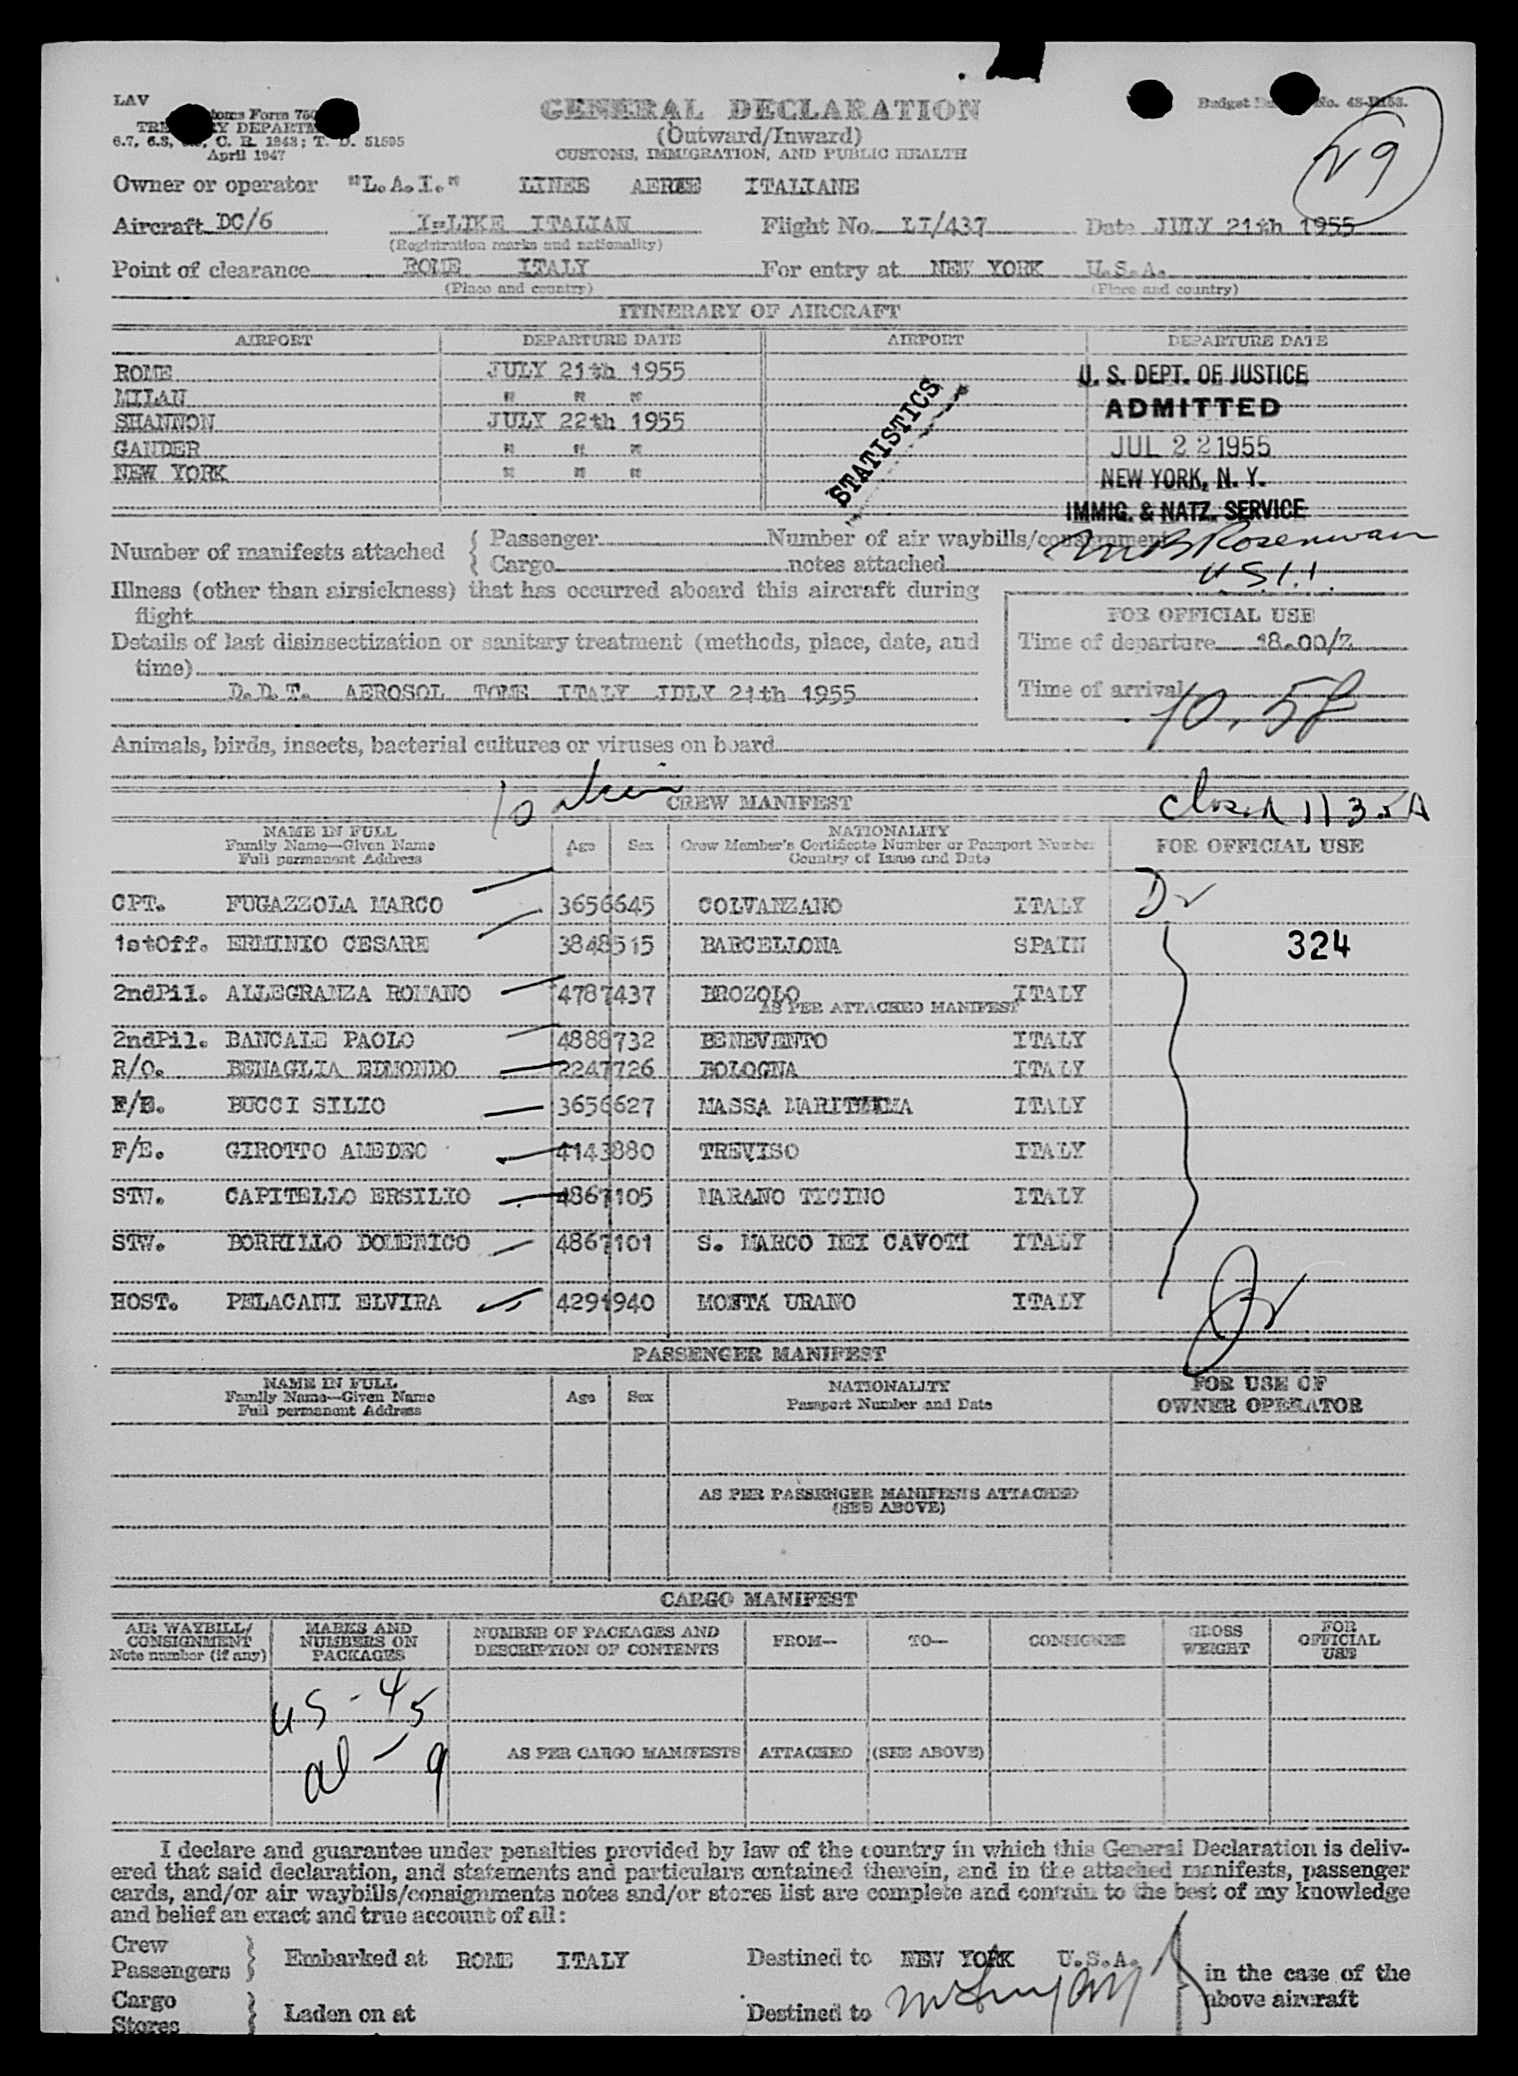 LAV
Customs Form 750
TREASURY DEPARTMENT
6.7, 6.8, C. R. 1943; T. D. 51595
April 1947
GENERAL DECLARATION
(Outward/Inward)
CUSTOMS, IMMIGRATION, AND PUBLIC HEALTH
Budget No.
Owner or operator "L.A.I." LINEE AEREE ITALIANE
Aircraft DC/6 I-LIKE ITALIAN Flight No. LI/437 Date JULY 21th 1955
(Registration marks and nationality)
Point of clearance ROME ITALY For entry at NEW YORK U.S.A.
(Place and country) (Place and country)
ITINERARY OF AIRCRAFT
AIRPORT DEPARTURE DATE AIRPORT DEPARTURE DATE
ROME JULY 21th 1955
MILAN " " "
SHANNON JULY 22th 1955
GANDER " " "
NEW YORK " " "
STATISTICS
U. S. DEPT. OF JUSTICE
ADMITTED
JUL 22 1955
NEW YORK, N. Y.
IMMIG. & NATZ. SERVICE
Number of manifests attached { Passenger Number of air waybills/consignment
{ Cargo notes attached
Illness (other than airsickness) that has occurred aboard this aircraft during
flight
Details of last disinsectization or sanitary treatment (methods, place, date, and
time)
D.D.T. AEROSOL TOME ITALY JULY 21th 1955
FOR OFFICIAL USE
Time of departure 18.00/Z
Time of arrival 10.58
Animals, birds, insects, bacterial cultures or viruses on board
10
CREW MANIFEST
Closed 1135A
NAME IN FULL
Family Name—Given Name
Full permanent Address
Age Sex
NATIONALITY
Crew Member's Certificate Number or Passport Number
Country of Issue and Date
FOR OFFICIAL USE
CPT. FUGAZZOLA MARCO 3656645 COLVANZANO ITALY
1stOff. ERMINIO CESARE 3848515 BARCELLONA SPAIN 324
2ndPil. ALLEGRANZA ROMANO 4787437 BROZOLO ITALY
AS PER ATTACHED MANIFEST
2ndPil. BANCALE PAOLO 4888732 BENEVENTO ITALY
R/O. BENAGLIA EDMONDO 2247726 BOLOGNA ITALY
F/E. BUCCI SILIO 3656627 MASSA MARITTIMA ITALY
F/E. GIROTTO AMEDEO 4143880 TREVISO ITALY
STW. CAPITELLO ERSILIO 4867105 MARANO TICINO ITALY
STW. BORRILLO DOMENICO 4867101 S. MARCO DEI CAVOTI ITALY
HOST. PELACANI ELVIRA 4291940 URANO ITALY
PASSENGER MANIFEST
NAME IN FULL
Family Name—Given Name
Full permanent Address
Age Sex
NATIONALITY
Passport Number and Date
FOR USE OF
OWNER OPERATOR
AS PER PASSENGER MANIFESTS ATTACHED
(SEE ABOVE)
CARGO MANIFEST
AIR WAYBILL/
CONSIGNMENT
Note number (if any)
MARKS AND
NUMBERS ON
PACKAGES
NUMBER OF PACKAGES AND
DESCRIPTION OF CONTENTS
FROM— TO— CONSIGNEE
GROSS
WEIGHT
FOR
OFFICIAL
USE
US - 45
al - 9
AS PER CARGO MANIFESTS ATTACHED (SEE ABOVE)
I declare and guarantee under penalties provided by law of the country in which this General Declaration is deliv-
ered that said declaration, and statements and particulars contained therein, and in the attached manifests, passenger
cards, and/or air waybills/consignments notes and/or stores list are complete and contain to the best of my knowledge
and belief an exact and true account of all:
Crew
Passengers } Embarked at ROME ITALY Destined to NEW YORK U.S.A.
in the case of the
above aircraft
Cargo
Stores } Laden on at Destined to